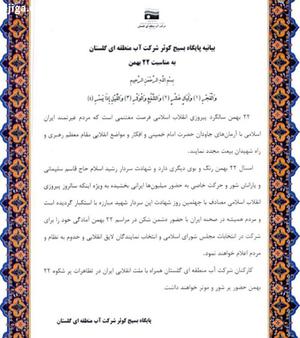 jiga.ir
شرکت آب منطقه ای گلستان
بیانیه پایگاه بسیج کوثر شرکت آب منطقه ای گلستان
به مناسبت ۲۲ بهمن
بِسْمِ اللَّهِ الرَّحْمَنِ الرَّحِيمِ
وَالْفَجْرِ (۱) وَلَيَالٍ عَشْرٍ (۲) وَالشَّفْعِ وَالْوَتْرِ (۳) وَاللَّيْلِ إِذَا يَسْرِ (۴)
۲۲ بهمن سالگرد پیروزی انقلاب اسلامی فرصت مغتنمی است که مردم غیرتمند ایران
اسلامی با آرمان‌های جاودان حضرت امام خمینی و افکار و مواضع انقلابی مقام معظم رهبری و
راه شهیدان بیعت مجدد نمایند.
امسال ۲۲ بهمن رنگ و بوی دیگری دارد و شهادت سردار رشید اسلام حاج قاسم سلیمانی
و یارانش شور و حرکت خاصی به حضور میلیون‌ها ایرانی بخشیده به ویژه اینکه سالروز پیروزی
انقلاب اسلامی مصادف با چهلمین روز شهادت این سردار شهید مبارزه با استکبار گردیده است
و مردم همیشه در صحنه ایران با حضور دشمن شکن در مراسم ۲۲ بهمن آمادگی خود را برای
شرکت در انتخابات مجلس شورای اسلامی و انتخاب نمایندگان لایق انقلابی و خدوم به نظام و
مردم اعلام خواهند نمود.
کارکنان شرکت آب منطقه ای گلستان همراه با ملت انقلابی ایران در تظاهرات پر شکوه ۲۲
بهمن حضور پر شور و موثر خواهند داشت.
پایگاه بسیج کوثر شرکت آب منطقه ای گلستان